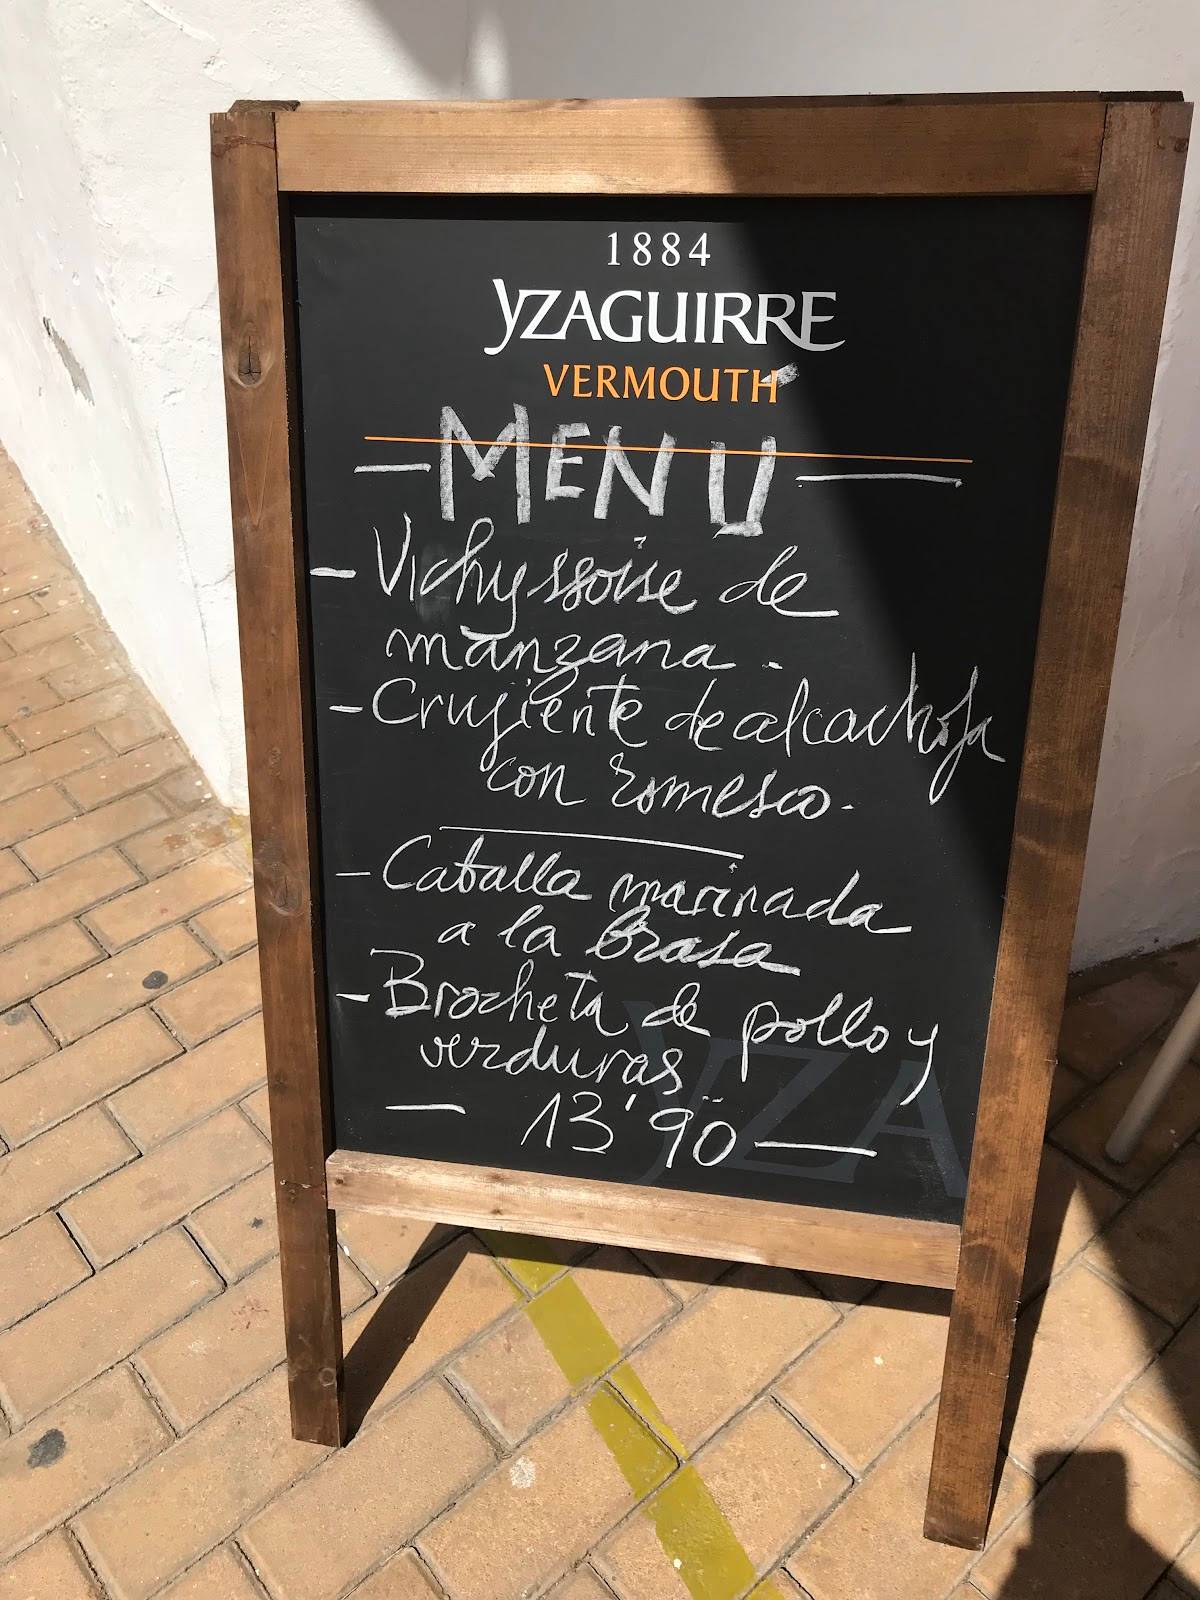 1884
YZAGUIRRE
VERMOUTH
— MENÚ —
- Vichyssoise de
manzana.
- Crujiente de alcachofa
con romesco.
- Caballa marinada
a la brasa
- Brocheta de pollo y
verduras
— 13'90 —
YZA